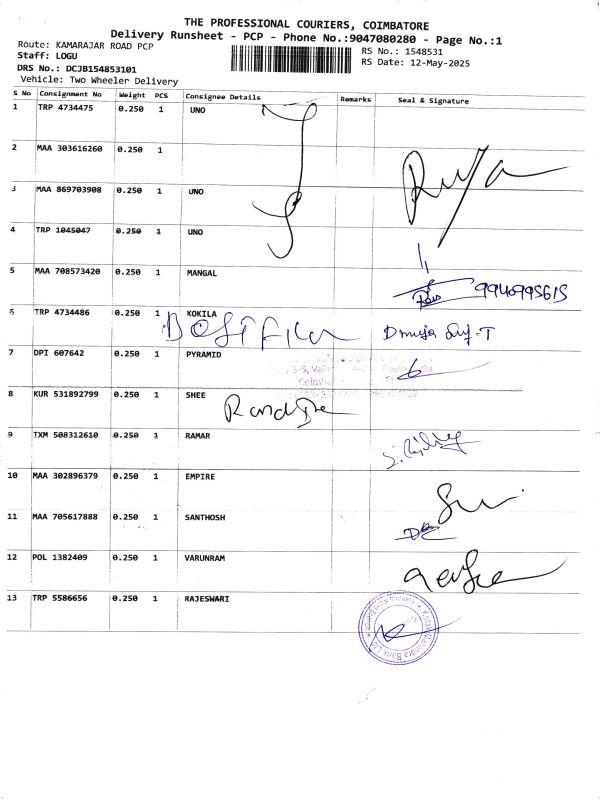 THE PROFESSIONAL COURIERS, COIMBATORE
Delivery Runsheet - PCP - Phone No.:9047080280 - Page No.:1
Route: KAMARAJAR ROAD PCP
RS No.: 1548531
Staff: LOGU
RS Date: 12-May-2025
DRS No.: DCJB154853101
Vehicle: Two Wheeler Delivery
S No Consignment No Weight PCS Consignee Details Remarks Seal & Signature
1 TRP 4734475 0.250 1 UNO
2 MAA 303616260 0.250 1
3 MAA 869703908 0.250 1 UNO
4 TRP 1045047 0.250 1 UNO
5 MAA 708573420 0.250 1 MANGAL
9940995615
6 TRP 4734486 0.250 1 KOKILA
7 DPI 607642 0.250 1 PYRAMID
8 KUR 531892799 0.250 1 SHEE
9 TXM 508312610 0.250 1 RAMAR
10 MAA 302896379 0.250 1 EMPIRE
11 MAA 705617888 0.250 1 SANTHOSH
12 POL 1382409 0.250 1 VARUNRAM
13 TRP 5586656 0.250 1 RAJESWARI
Kotak Mahindra Bank Ltd